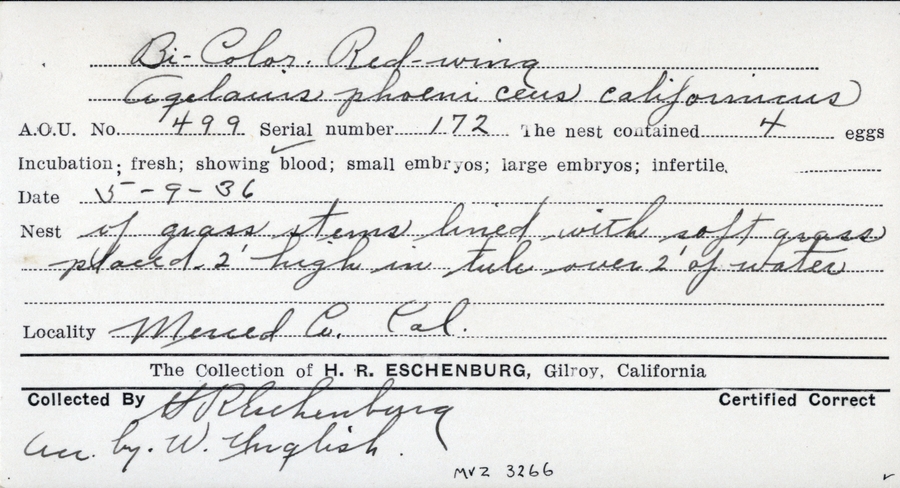 Bi-Color. Red-wing
Agelaius phoeniceus californicus
A.O.U. No. 499 Serial number 172 The nest contained 4 eggs
Incubation; fresh; showing blood; small embryos; large embryos; infertile.
Date 5-9-36
Nest of grass stems lined with soft grass
placed 2' high in tule over 2' of water
Locality Merced Co. Cal.
The Collection of H. R. ESCHENBURG, Gilroy, California
Collected By H R Eschenburg Certified Correct
by. W. English.
MVZ 3266